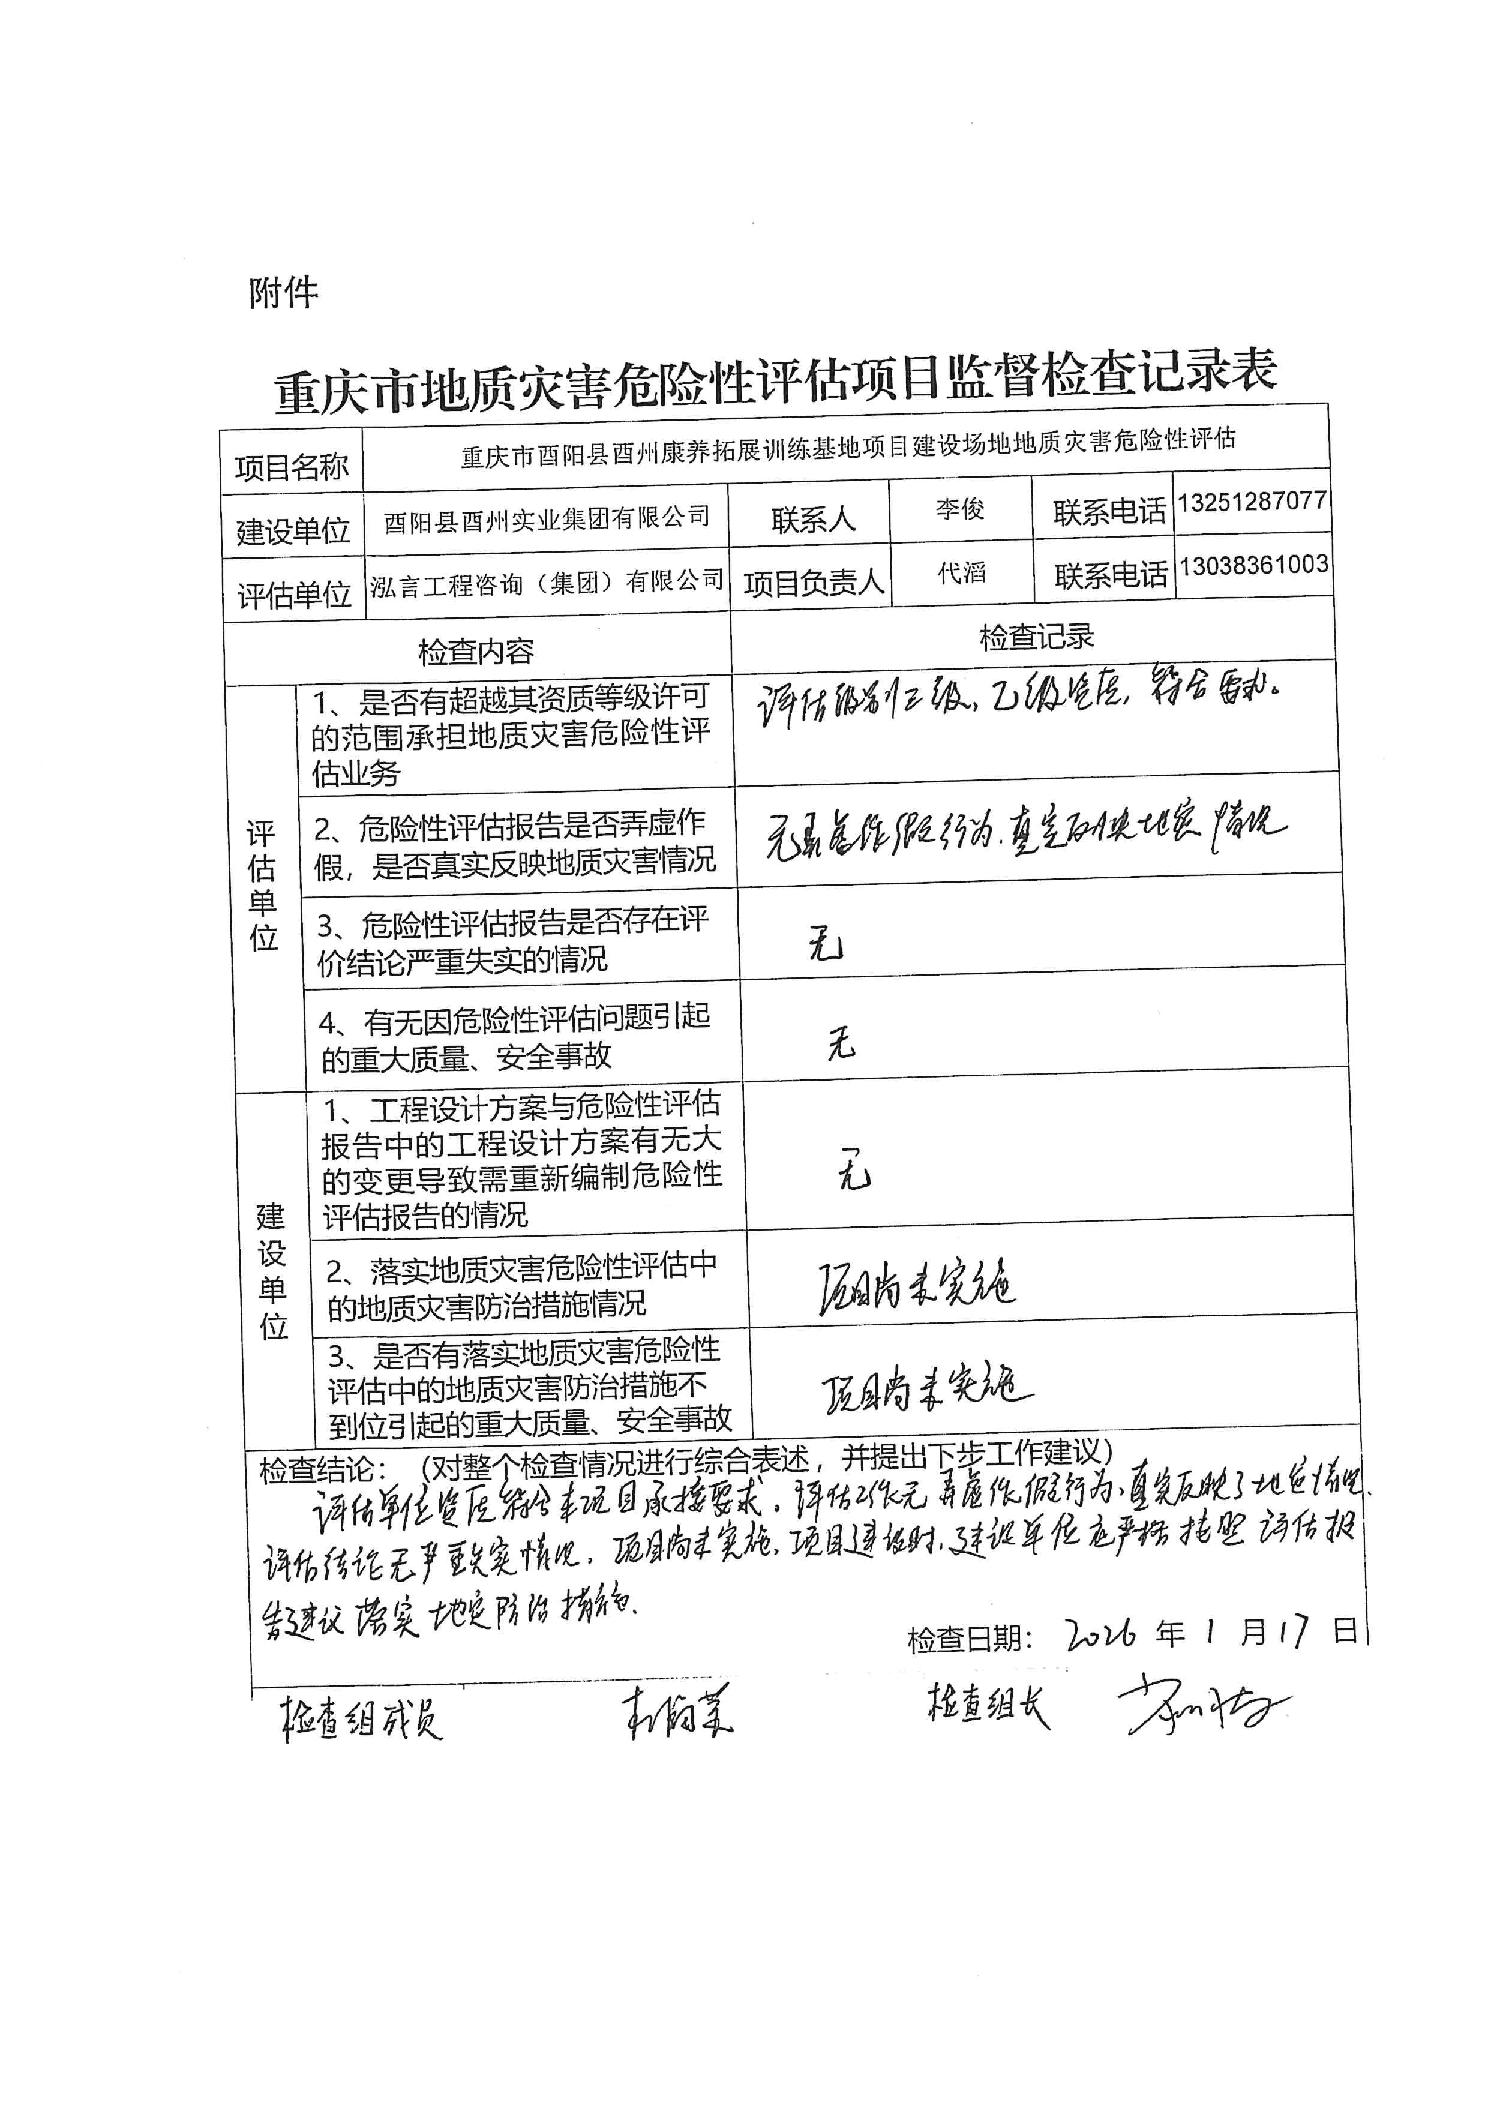 附件
重庆市地质灾害危险性评估项目监督检查记录表
项目名称 重庆市酉阳县酉州康养拓展训练基地项目建设场地地质灾害危险性评估
建设单位 酉阳县酉州实业集团有限公司 联系人 李俊 联系电话 13251287077
评估单位 泓言工程咨询（集团）有限公司 项目负责人 代滔 联系电话 13038361003
检查内容 检查记录
评估单位
1、是否有超越其资质等级许可
的范围承担地质灾害危险性评
估业务
评估级别二级，乙级资质，符合要求。
2、危险性评估报告是否弄虚作
假，是否真实反映地质灾害情况
无弄虚作假行为，真实反映地灾情况
3、危险性评估报告是否存在评
价结论严重失实的情况
无
4、有无因危险性评估问题引起
的重大质量、安全事故
无
建设单位
1、工程设计方案与危险性评估
报告中的工程设计方案有无大
的变更导致需重新编制危险性
评估报告的情况
无
2、落实地质灾害危险性评估中
的地质灾害防治措施情况
项目尚未实施
3、是否有落实地质灾害危险性
评估中的地质灾害防治措施不
到位引起的重大质量、安全事故
项目尚未实施
检查结论：（对整个检查情况进行综合表述，并提出下步工作建议）
评估单位资质符合本项目承接要求，评估工作无弄虚作假行为，真实反映了地灾情况，
评估结论无严重失实情况，项目尚未实施，项目建设时，建设单位应严格按照评估报
告建议落实地灾防治措施。
检查日期：2026年1月17日
检查组成员 检查组长